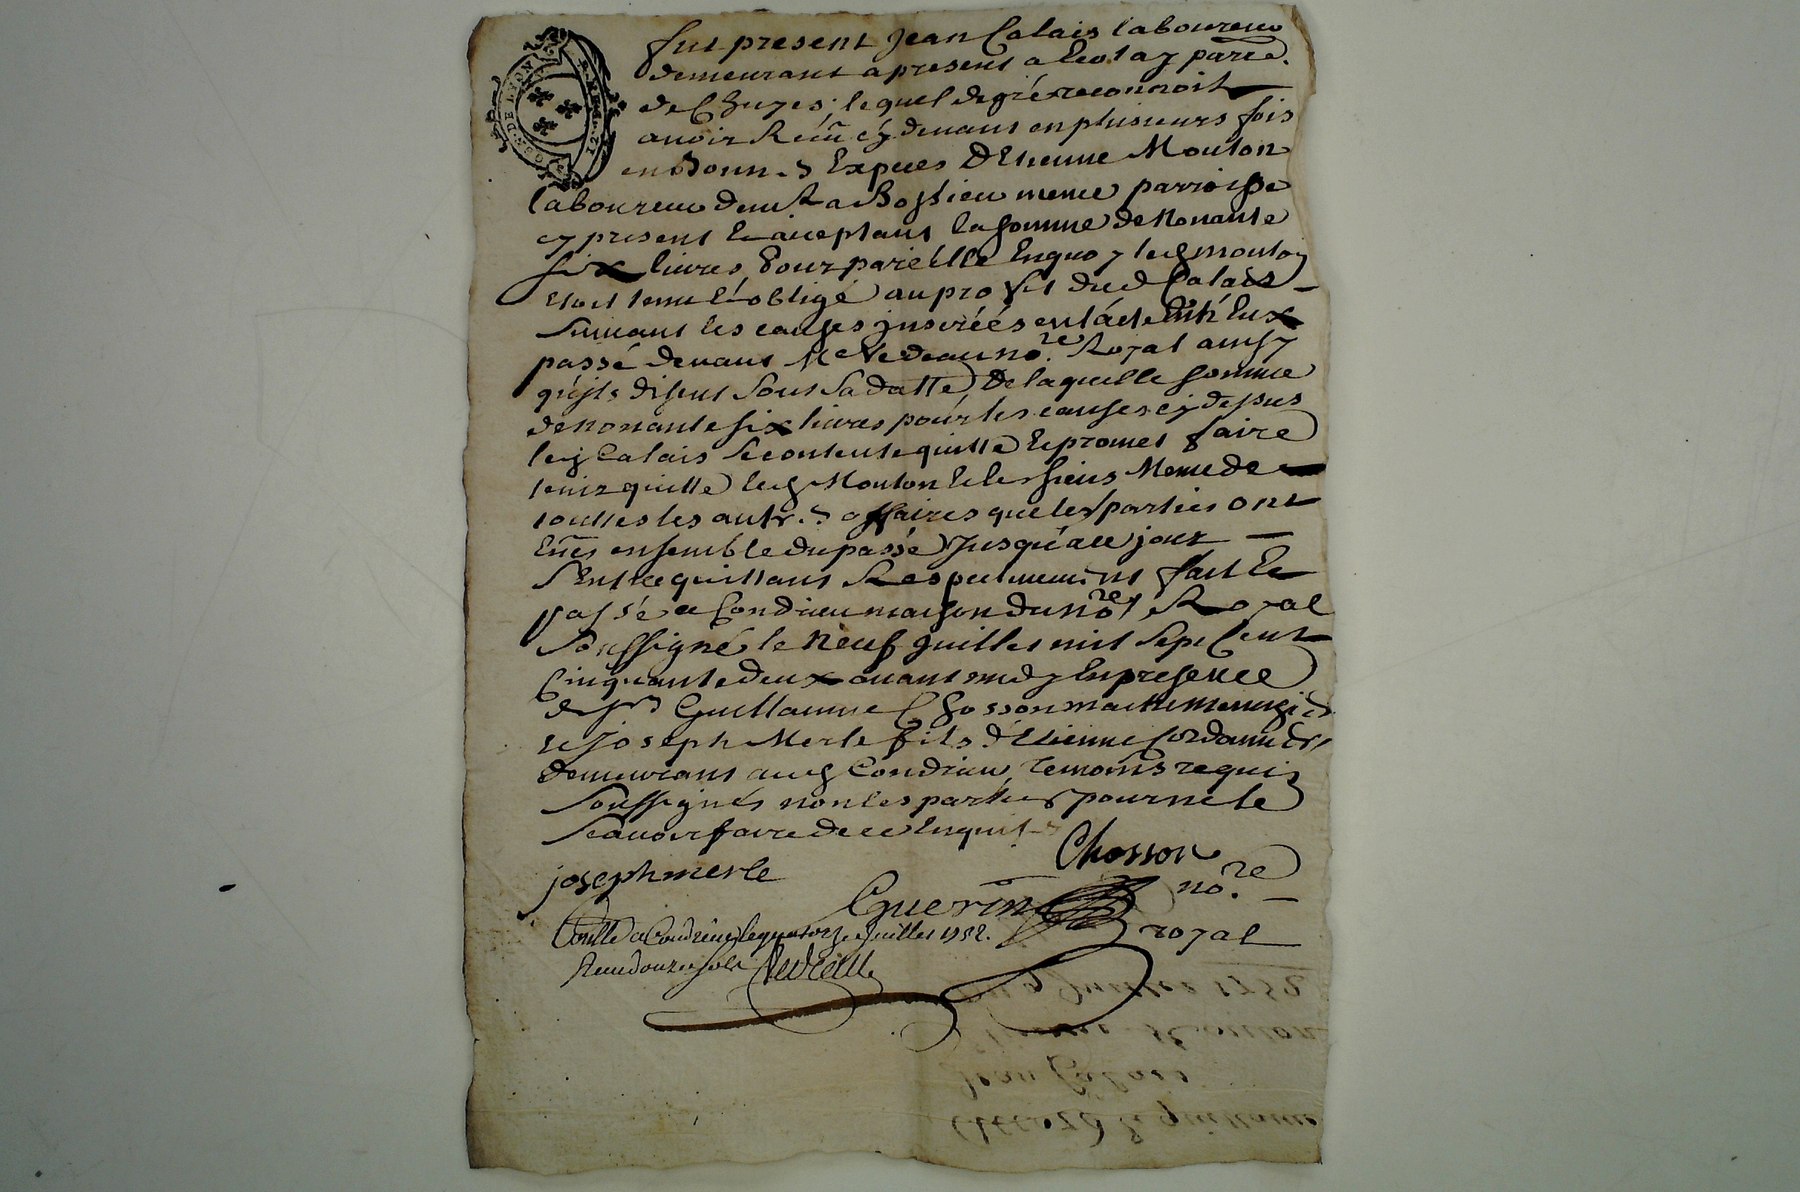 GON. DE LYON
fut present Jean Calais laboureur
demeurant a present a parre.
de Chuyes, lequel de gré reconnoit
avoir Recu cy devant en plusieurs fois
en bonnes Especes D'Etienne Mouton
laboureur demt a Bossieu meme parroisse
cy present Et acceptant la somme de Nonante
six livres pour pareille Enquoy led Mouton
etoit tenu Et obligé au profit dud Calais
suivant les causes inserées en l'acte Entr'Eux
passé devant Me Vedeau nore Royal ainsy
qu'ils disent sous sa datte, De laquelle somme
de nonante six livres pour les causes cy dessus
led Calais se contente quitte Et promet faire
tenir quitte led Mouton Et les siens Meme de
touttes les autres affaires que les parties ont
Eües ensemble du passé Jusqu'a ce jour
S'Entrequittant Respectivement fait Et
passé a Condrieu maison du nore Royal
soussigné le neuf Juillet mil sept Cent
Cinquante deux avant midy En presence
de sr Guillaume Chosson maitre menuzier
et Joseph Merle fils d'Etienne Cordonnier
demeurants aud Condrieu, temoins requis
soussignés non les parties pour ne le
scavoir faire de ce Enquis
Chosson
joseph merle
Guerin nore
royal
Conllé a Condrieu le quatorze Juillet 1752.
Recu douze sols
Du 9 Juillet 1752
Etienne Mouton
Jean Calais
Accord Et quittance